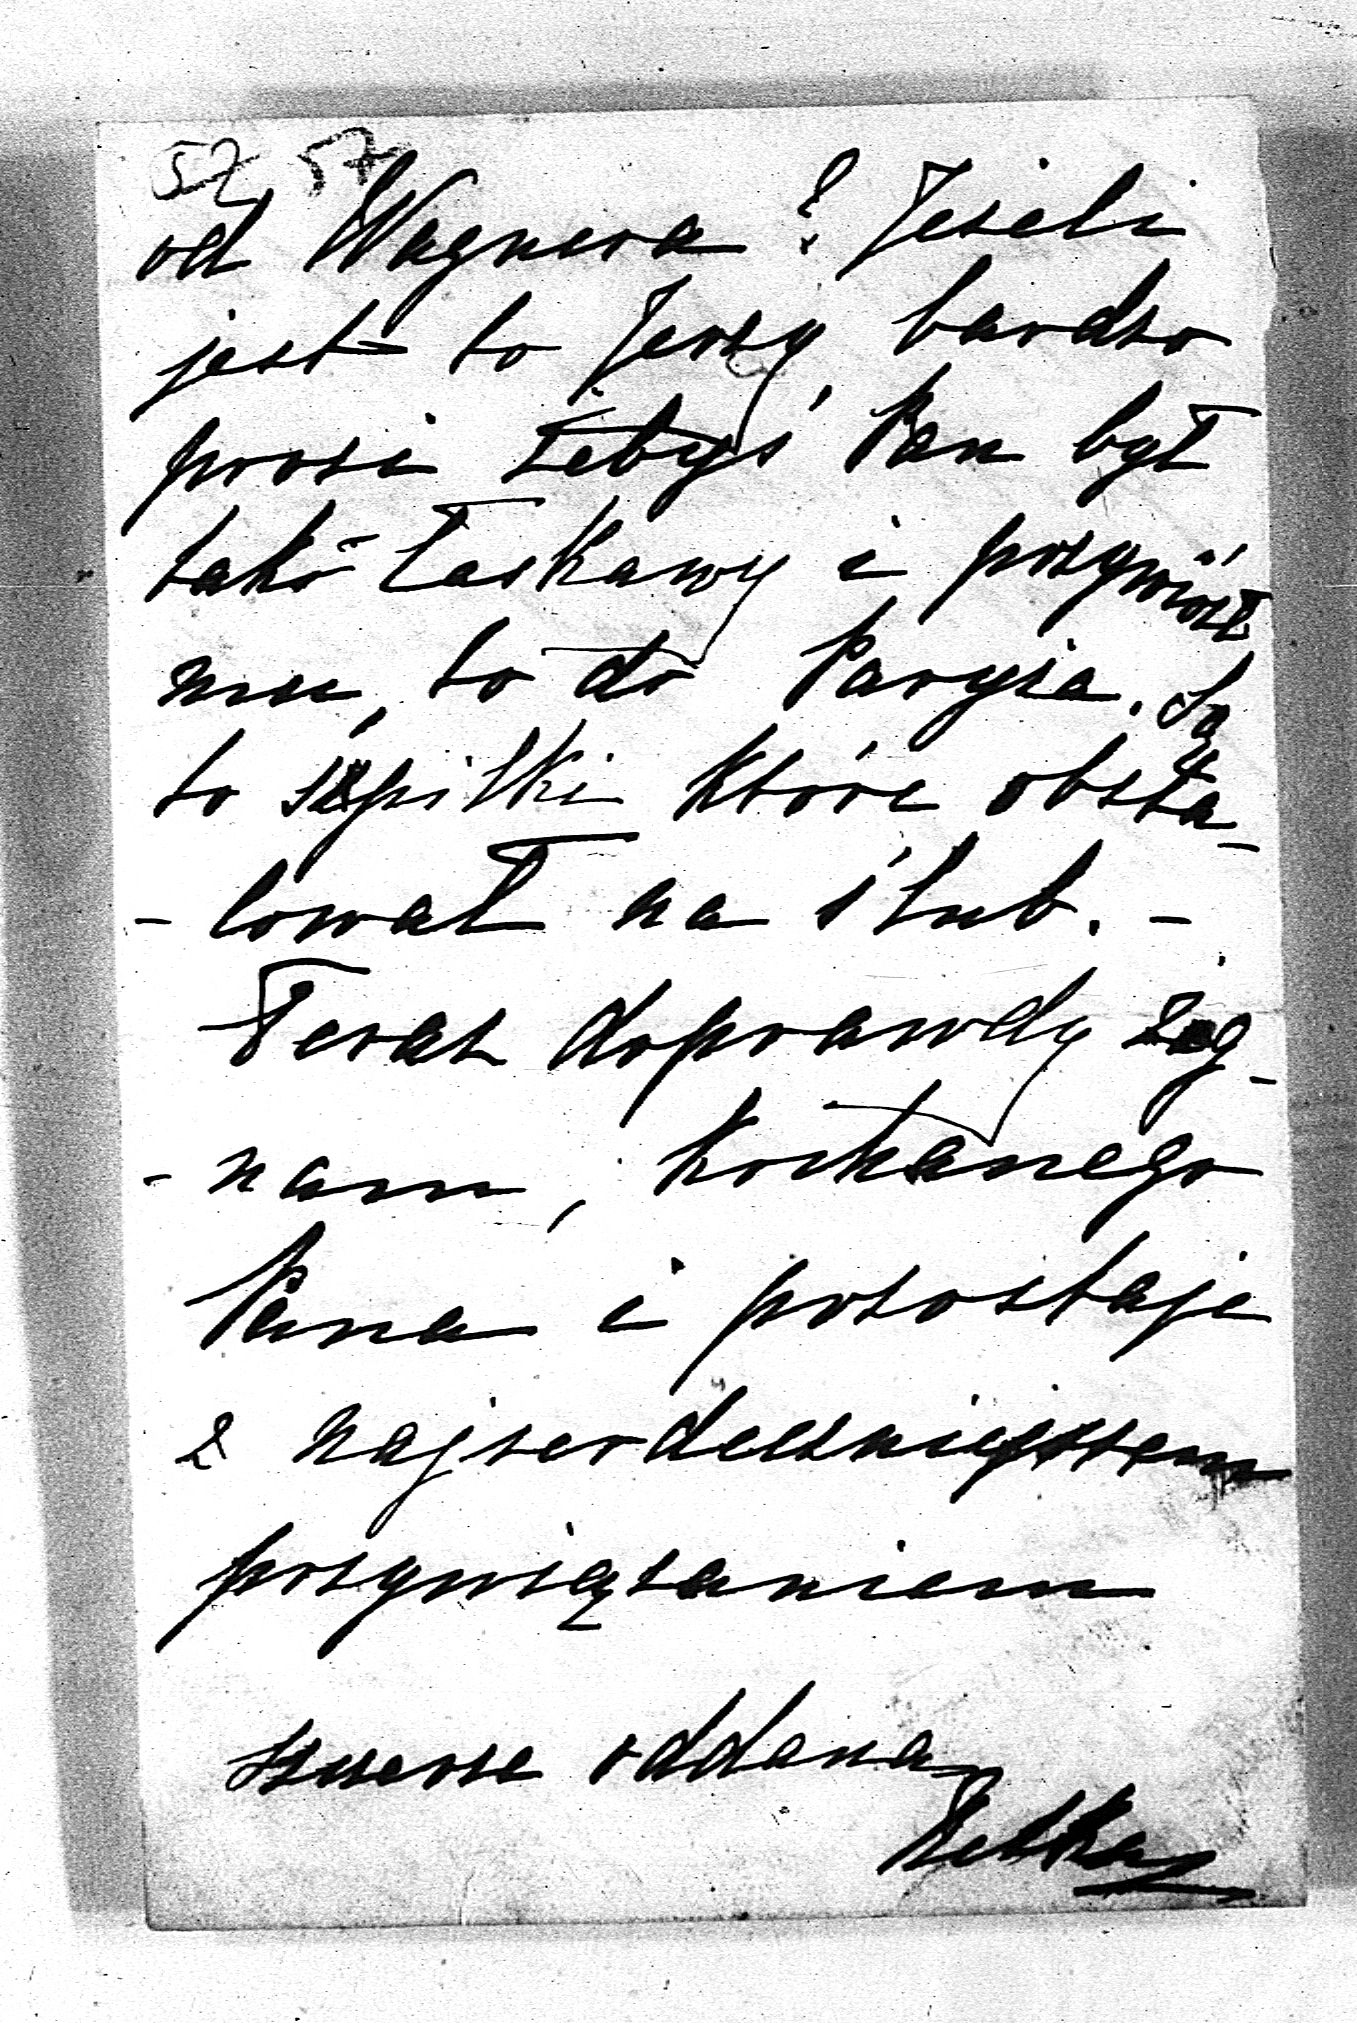 57 57
od Wagnera? Jeżeli
jest to Jerzy, bardzo
prosi żebyś Pan był
taki łaskawy i przywiózł
mu, to do Paryża. Są
to szpilki które obsta-
-lował na ślub. -
Teraz doprawdy żeg-
-nam, kochanego
Pana i pozostaję
z najserdeczniejszem
przywiązaniem
szczerze oddana